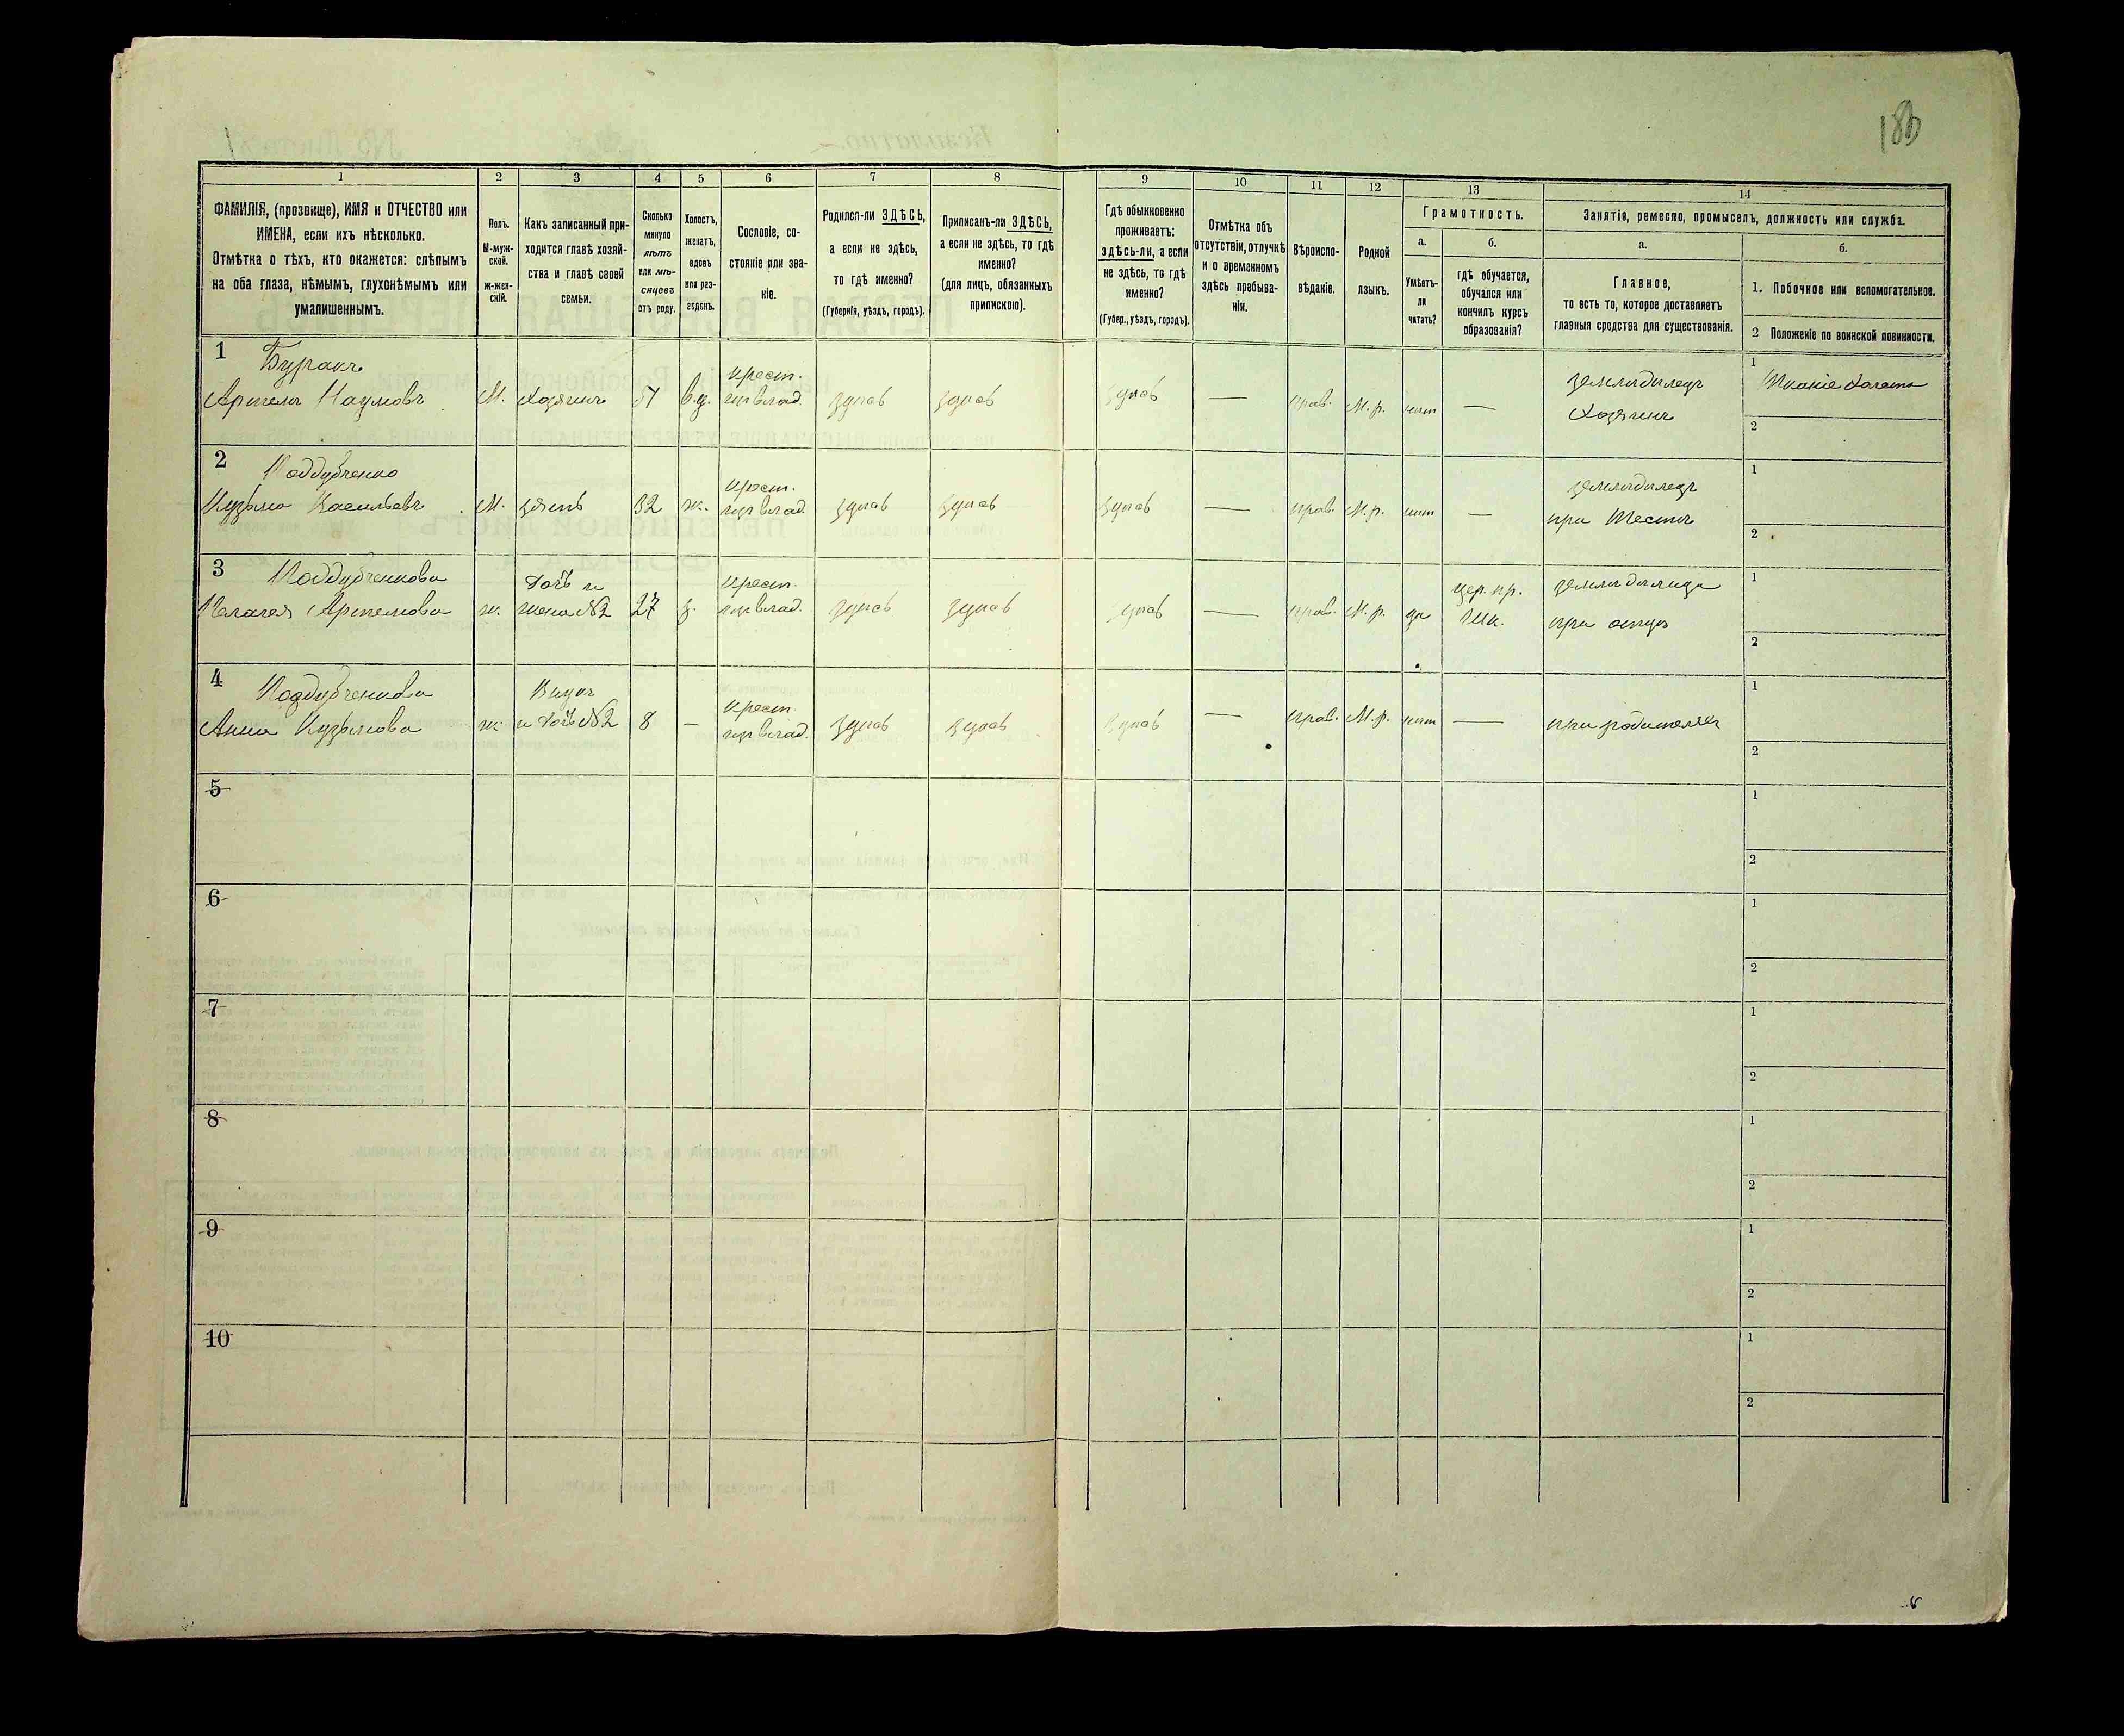 183
1
2
3
4
5
6
7
8
9
10
11
12
13
14
ФАМИЛІЯ, (прозвище), ИМЯ и ОТЧЕСТВО или
ИМЕНА, если ихъ нѣсколько.
Отмѣтка о тѣхъ, кто окажется: слѣпымъ
на оба глаза, нѣмымъ, глухонѣмымъ или
умалишеннымъ.
Полъ.
М-муж-
ской.
ж-жен-
скій.
Какъ записанный при-
ходится главѣ хозяй-
ства и главѣ своей
семьи.
Сколько
минуло
лѣтъ
или мѣ-
сяцевъ
отъ роду.
Холостъ,
женатъ,
вдовъ
или раз-
веденъ.
Сословіе, со-
стояніе или зва-
ніе.
Родился-ли ЗДѢСЬ,
а если не здѣсь,
то гдѣ именно?
(Губернія, уѣздъ, городъ).
Приписанъ-ли ЗДѢСЬ,
а если не здѣсь, то гдѣ
именно?
(для лицъ, обязанныхъ
припискою).
Гдѣ обыкновенно
проживаетъ:
здѣсь-ли, а если
не здѣсь, то гдѣ
именно?
(Губер., уѣздъ, городъ).
Отмѣтка объ
отсутствіи, отлучкѣ
и о временномъ
здѣсь пребыва-
ніи.
Вѣроиспо-
вѣданіе.
Родной
языкъ.
Грамотность.
а.
б.
Умѣетъ-
ли
читать?
гдѣ обучается,
обучался или
кончилъ курсъ
образованія?
Занятія, ремесло, промыселъ, должность или служба.
а.
б.
Главное,
то есть то, которое доставляетъ
главныя средства для существованія.
1. Побочное или вспомогательное.
2 Положеніе по воинской повинности.
1 Буракъ
Артемъ Наумовъ
М.
Хозяинъ
57
вд.
крест.
гор влад.
здѣсь
здѣсь
здѣсь
—
прав.
М. р.
нѣт
—
земледѣлецъ
Хозяинъ
1
2
2 Поддубченко
Кузьма Васильевъ
М.
зять
32
ж.
крест.
гор влад
здѣсь
здѣсь
здѣсь
—
прав.
М. р.
нѣт
—
земледѣлецъ
при Тестѣ
1
2
3 Поддубченкова
Пелагея Артемова
ж.
Дочь и
жена №2
27
з.
крест.
гор влад.
здѣсь
здѣсь
здѣсь
—
прав.
М. р.
да
цер. пр.
Шк.
земледѣлица
при отцѣ
1
2
4 Поддубченкова
Анна Кузьмова
ж.
Внука
и дочь №2
8
—
крест.
гор влад.
здѣсь
здѣсь
здѣсь
—
прав.
М. р.
нѣт
—
при родителях
1
2
5
1
2
6
1
2
7
1
2
8
1
2
9
1
2
10
1
2